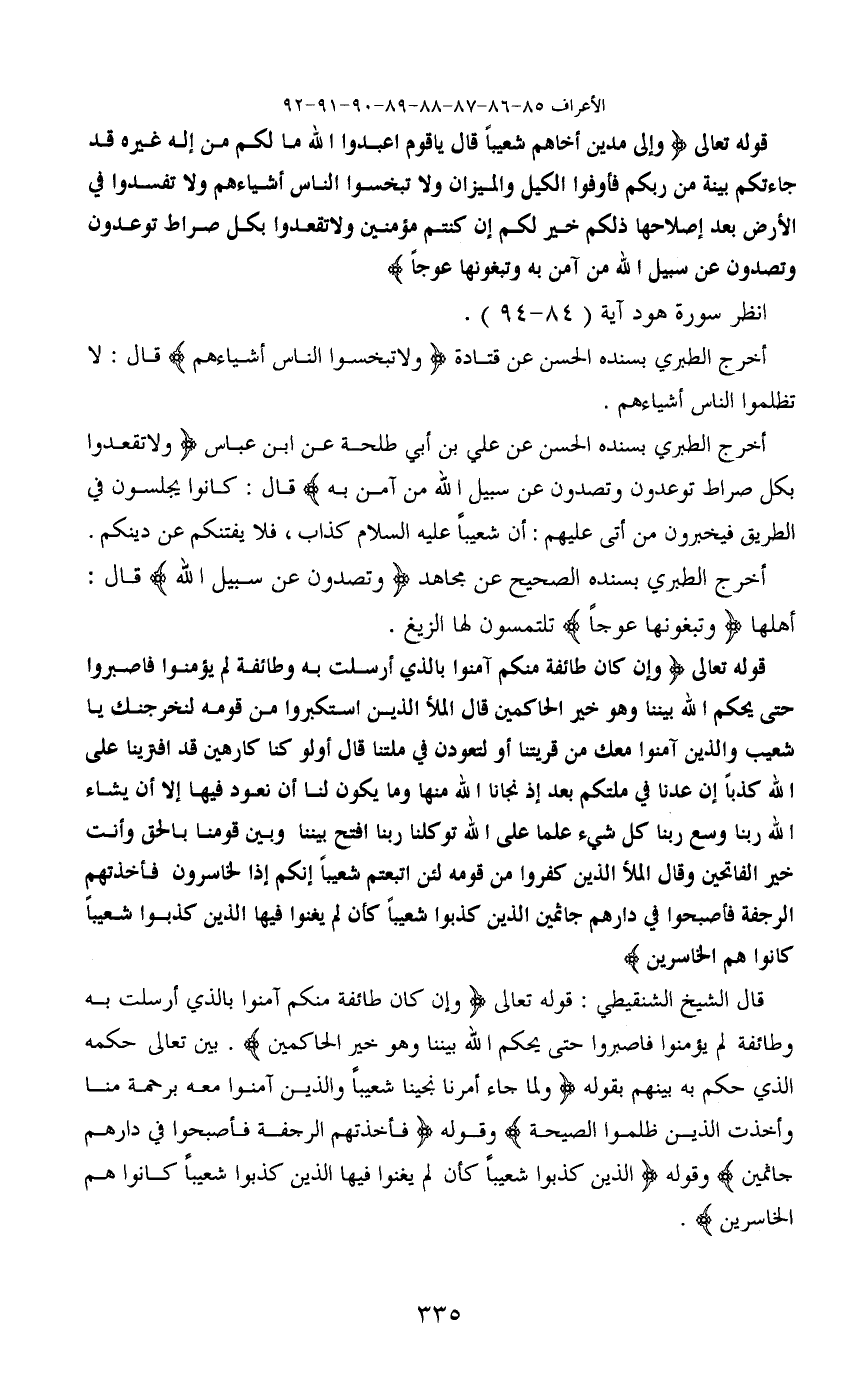 الأعراف ٨٥-٨٦-٨٧-٨٨-٨٩-٩٠-٩١-٩٢
قوله تعالى ﴿ وإلى مدين أخاهم شعيباً قال ياقوم اعبدوا الله ما لكم من إله غيره قد
جاءتكم بينة من ربكم فأوفوا الكيل والميزان ولا تبخسوا الناس أشياءهم ولا تفسدوا في
الأرض بعد إصلاحها ذلكم خير لكم إن كنتم مؤمنين ولاتقعدوا بكل صراط توعدون
وتصدون عن سبيل الله من آمن به وتبغونها عوجاً ﴾
انظر سورة هود آية ( ٨٤-٩٤ ) .
أخرج الطبري بسنده الحسن عن قتادة ﴿ ولاتبخسوا الناس أشياءهم ﴾ قال : لا
تظلموا الناس أشياءهم .
أخرج الطبري بسنده الحسن عن علي بن أبي طلحة عن ابن عباس ﴿ ولاتقعدوا
بكل صراط توعدون وتصدون عن سبيل الله من آمن به ﴾ قال : كانوا يجلسون في
الطريق فيخبرون من أتى عليهم : أن شعيباً عليه السلام كذاب ، فلا يفتنكم عن دينكم .
أخرج الطبري بسنده الصحيح عن مجاهد ﴿ وتصدون عن سبيل الله ﴾ قال :
أهلها ﴿ وتبغونها عوجاً ﴾ تلتمسون لها الزيغ .
قوله تعالى ﴿ وإن كان طائفة منكم آمنوا بالذي أرسلت به وطائفة لم يؤمنوا فاصبروا
حتى يحكم الله بيننا وهو خير الحاكمين قال الملأ الذين استكبروا من قومه لنخرجنك يا
شعيب والذين آمنوا معك من قريتنا أو لتعودن في ملتنا قال أولو كنا كارهين قد افترينا على
الله كذباً إن عدنا في ملتكم بعد إذ نجانا الله منها وما يكون لنا أن نعود فيها إلا أن يشاء
الله ربنا وسع ربنا كل شيء علما على الله توكلنا ربنا افتح بيننا وبين قومنا بالحق وأنت
خير الفاتحين وقال الملأ الذين كفروا من قومه لئن اتبعتم شعيباً إنكم إذا لخاسرون فأخذتهم
الرجفة فأصبحوا في دارهم جاثمين الذين كذبوا شعيباً كأن لم يغنوا فيها الذين كذبوا شعيباً
كانوا هم الخاسرين ﴾
قال الشيخ الشنقيطي : قوله تعالى ﴿ وإن كان طائفة منكم آمنوا بالذي أرسلت به
وطائفة لم يؤمنوا فاصبروا حتى يحكم الله بيننا وهو خير الحاكمين ﴾ . بين تعالى حكمه
الذي حكم به بينهم بقوله ﴿ ولما جاء أمرنا نجينا شعيباً والذين آمنوا معه برحمة منا
وأخذت الذين ظلموا الصيحة ﴾ وقوله ﴿ فأخذتهم الرجفة فأصبحوا في دارهم
جاثمين ﴾ وقوله ﴿ الذين كذبوا شعيباً كأن لم يغنوا فيها الذين كذبوا شعيباً كانوا هم
الخاسرين ﴾ .
٣٣٥